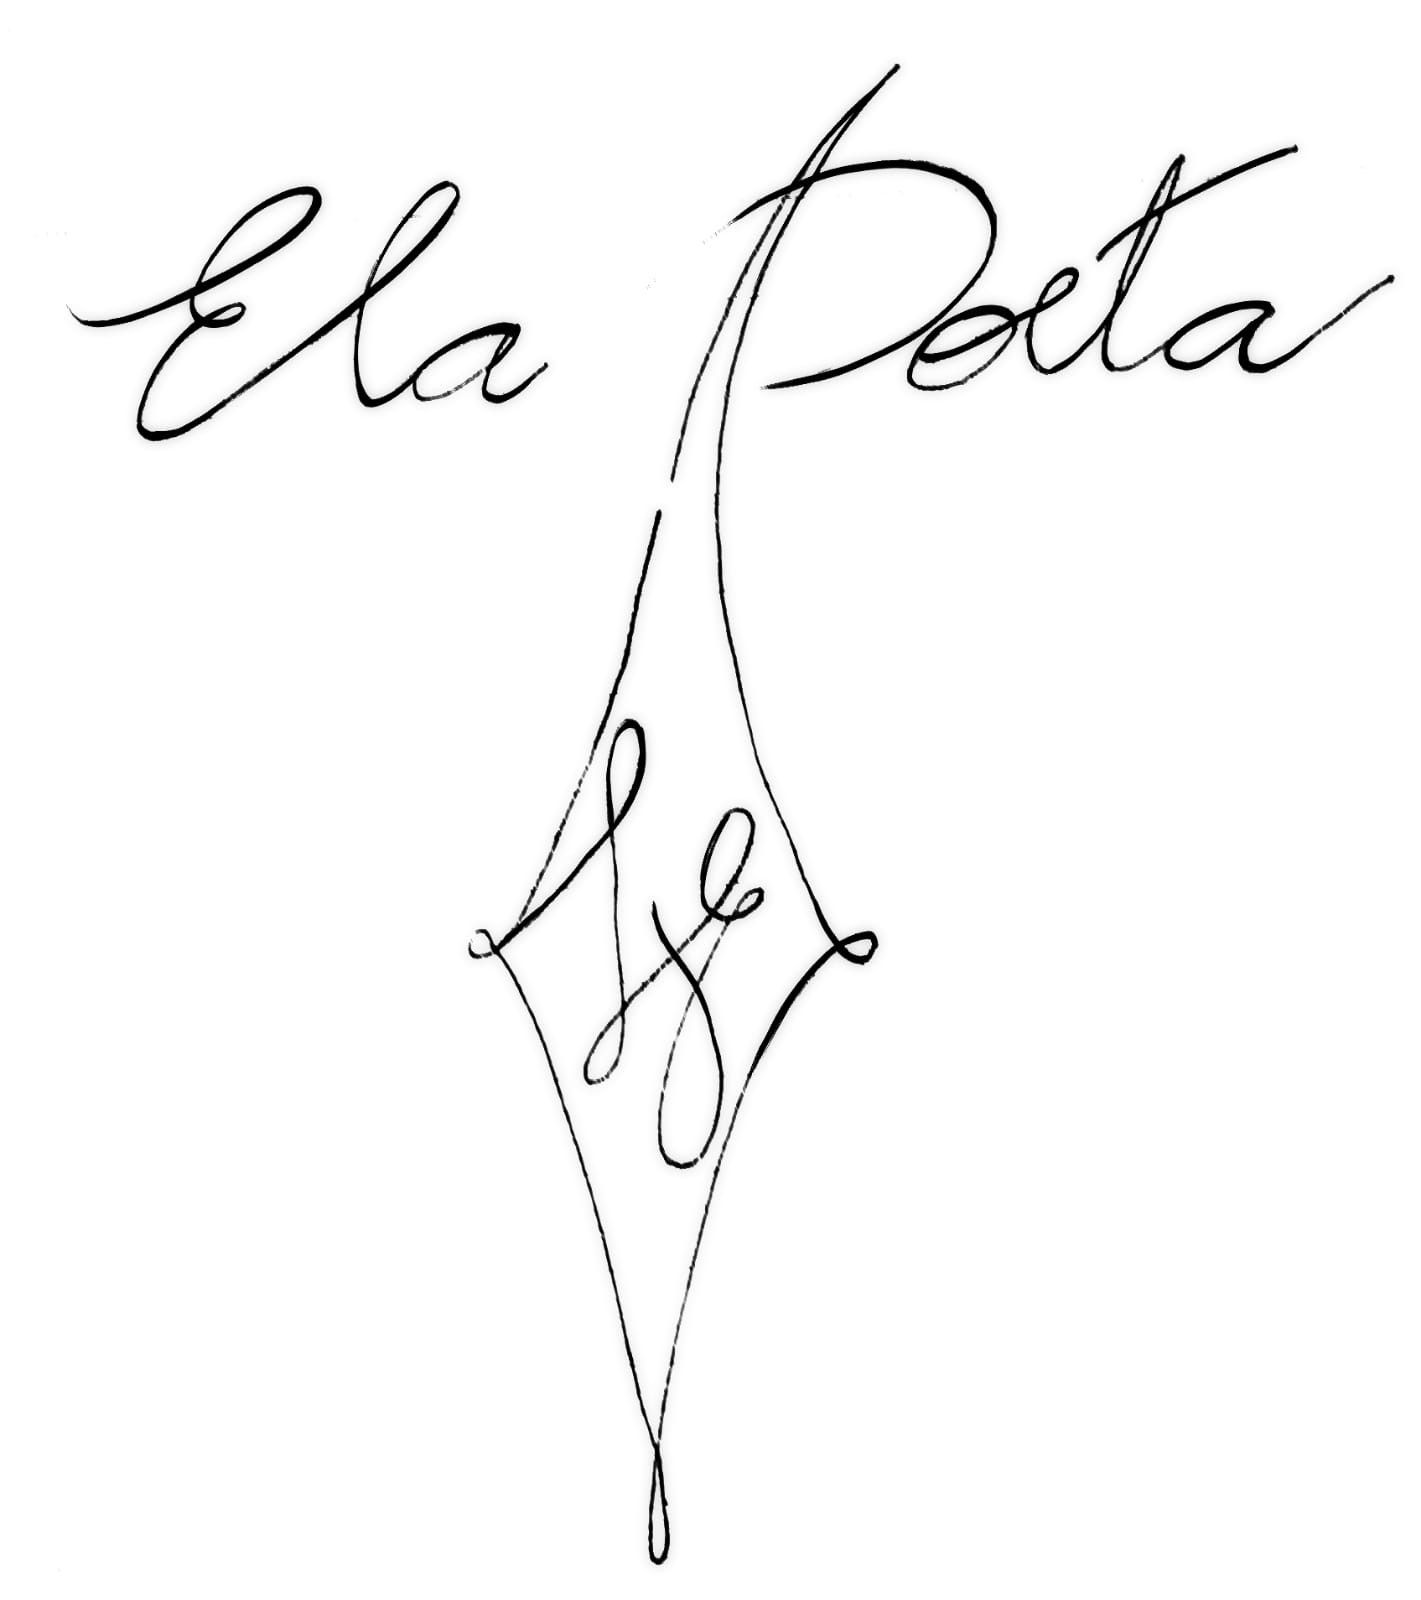 Ela Poeta